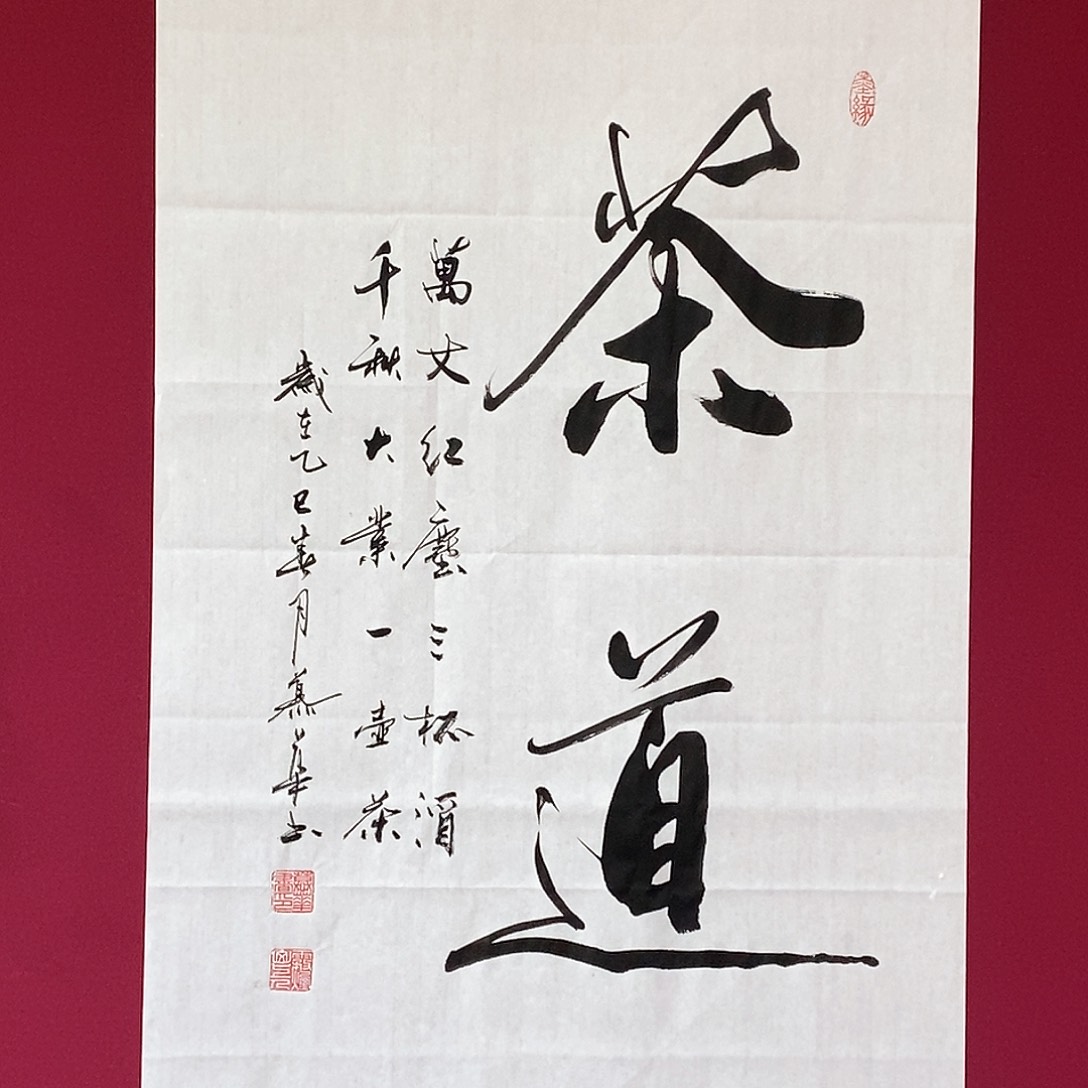 茶道
萬丈紅塵三杯酒
千秋大業一壺茶
歲在乙巳春月慕華書
墨緣